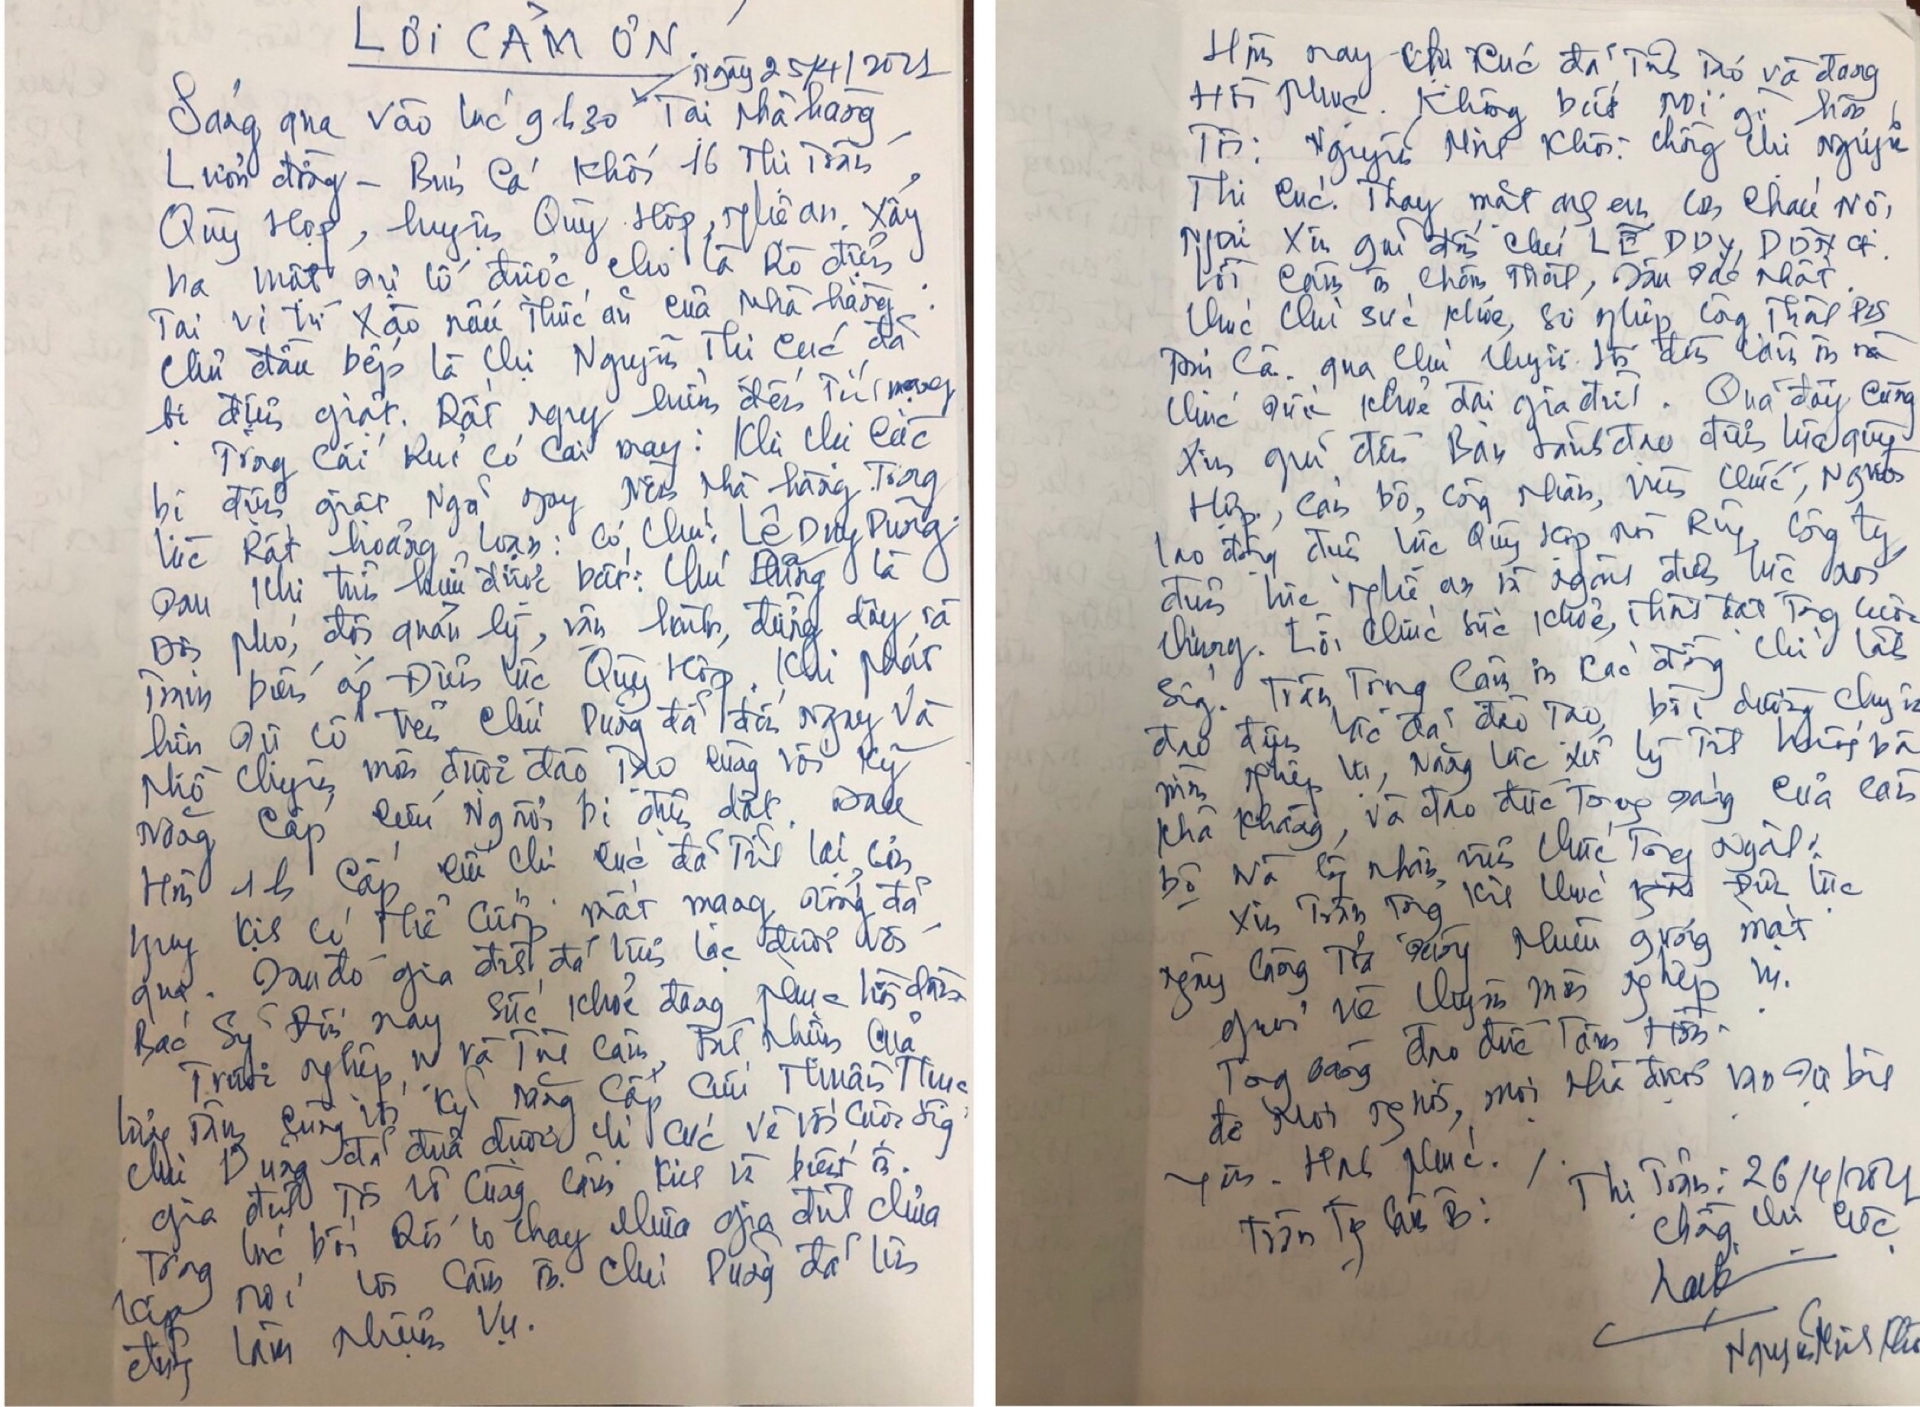 LỜI CẢM ƠN
Ngày 25/4/2021
Sáng qua vào lúc 9h30 Tại Nhà hàng
Lươn đồng - Bún Cá Khối 16 Thị Trấn
Quỳ Hợp, huyện Quỳ Hợp, nghệ an. Xảy
ra một sự cố được cho là Rò điện
Tại vị trí xào nấu thức ăn của Nhà hàng.
Chủ đầu bếp là chị Nguyễn Thị Cúc đã
bị điện giật. Rất nguy hiểm đến Tính mạng
Trong cái Rủi có cái may: Khi chị Cúc
bị điện giật Ngã ngay nền nhà hàng Trong
lúc Rất hoảng loạn: có chú: Lê Duy Dũng.
Sau khi tìm hiểu được biết: Chú Dũng là
Đội phó, đội quản lý, vận hành, đường dây và
Trạm biến áp Điện lực Quỳ Hợp. Khi phát
hiện sự cố trên chú Dũng đã đến Ngay và
Nhờ chuyên môn được đào Tạo cùng với Kỹ
Năng Cấp cứu Người bị điện dật. Sau
Hơn 1h Cấp cứu chị Cúc đã Tỉnh lại, cơn
nguy kịch có thể cướp mất mạng sống đã
qua. Sau đó gia đình đã liên lạc được với
Bác Sỹ Đến nay sức khỏe đang phục hồi dần
Trước nghiệp vụ và Tình cảm, Tinh nhiệm của
lương tâm cùng với kỹ năng cấp cứu Thuần Thục
chú Dũng đã đưa được chị Cúc về với cuộc sống.
gia đình Tôi vô cùng cảm kích và biết ơn.
Trong lúc bối Rối lo chạy chữa gia đình chưa
kịp nói lời cảm ơn. Chú Dũng đã lên
đường làm nhiệm vụ.
Hôm nay chị Cúc đã Tỉnh Táo và đang
Hồi Phục. Không biết nói gì hơn
Tôi: Nguyễn Minh Khôi: chồng chị Nguyễn
Thị Cúc. Thay mặt anh em con cháu Nội,
Ngoại Xin gửi đến chú LÊ DUY DŨNG.
Lời cảm ơn chân Thành, Sâu sắc nhất.
Chúc chú sức khỏe, sự nghiệp công Thành
qua chú chuyển lời đến cảm ơn và
chúc sức khỏe đại gia đình. Qua đây cũng
xin gửi đến Ban Lãnh đạo điện lực quỳ
Hợp, cán bộ, công nhân, viên chức, Người
lao động điện lực Quỳ Hợp nói Riêng, Công Ty
điện lực nghệ an và ngành điện lực nói
chung. Lời chúc sức khỏe, thành đạt Trong cuộc
sống. Trân Trọng cảm ơn các đồng chí lãnh
đạo điện lực đã đào Tạo, bồi dưỡng chuyên
môn nghiệp vụ, năng lực xử lý Tình huống bất
khả kháng, và đạo đức Trong sáng của cán
bộ Và công nhân, viên chức Trong ngành.
Xin Trân Trọng kính chúc ngành Điện lực
ngày càng Tỏa sáng Nhiều gương mặt
giỏi về chuyên môn nghiệp vụ.
Trong sáng đạo đức Tâm Hồn.
để Mọi người, mọi nhà được vào sự bình
yên. Hạnh phúc./.
Trân Trọng Cảm Ơn:
Thị Trấn: 26/4/2021
chồng chị Cúc
Nguyễn Minh Khôi